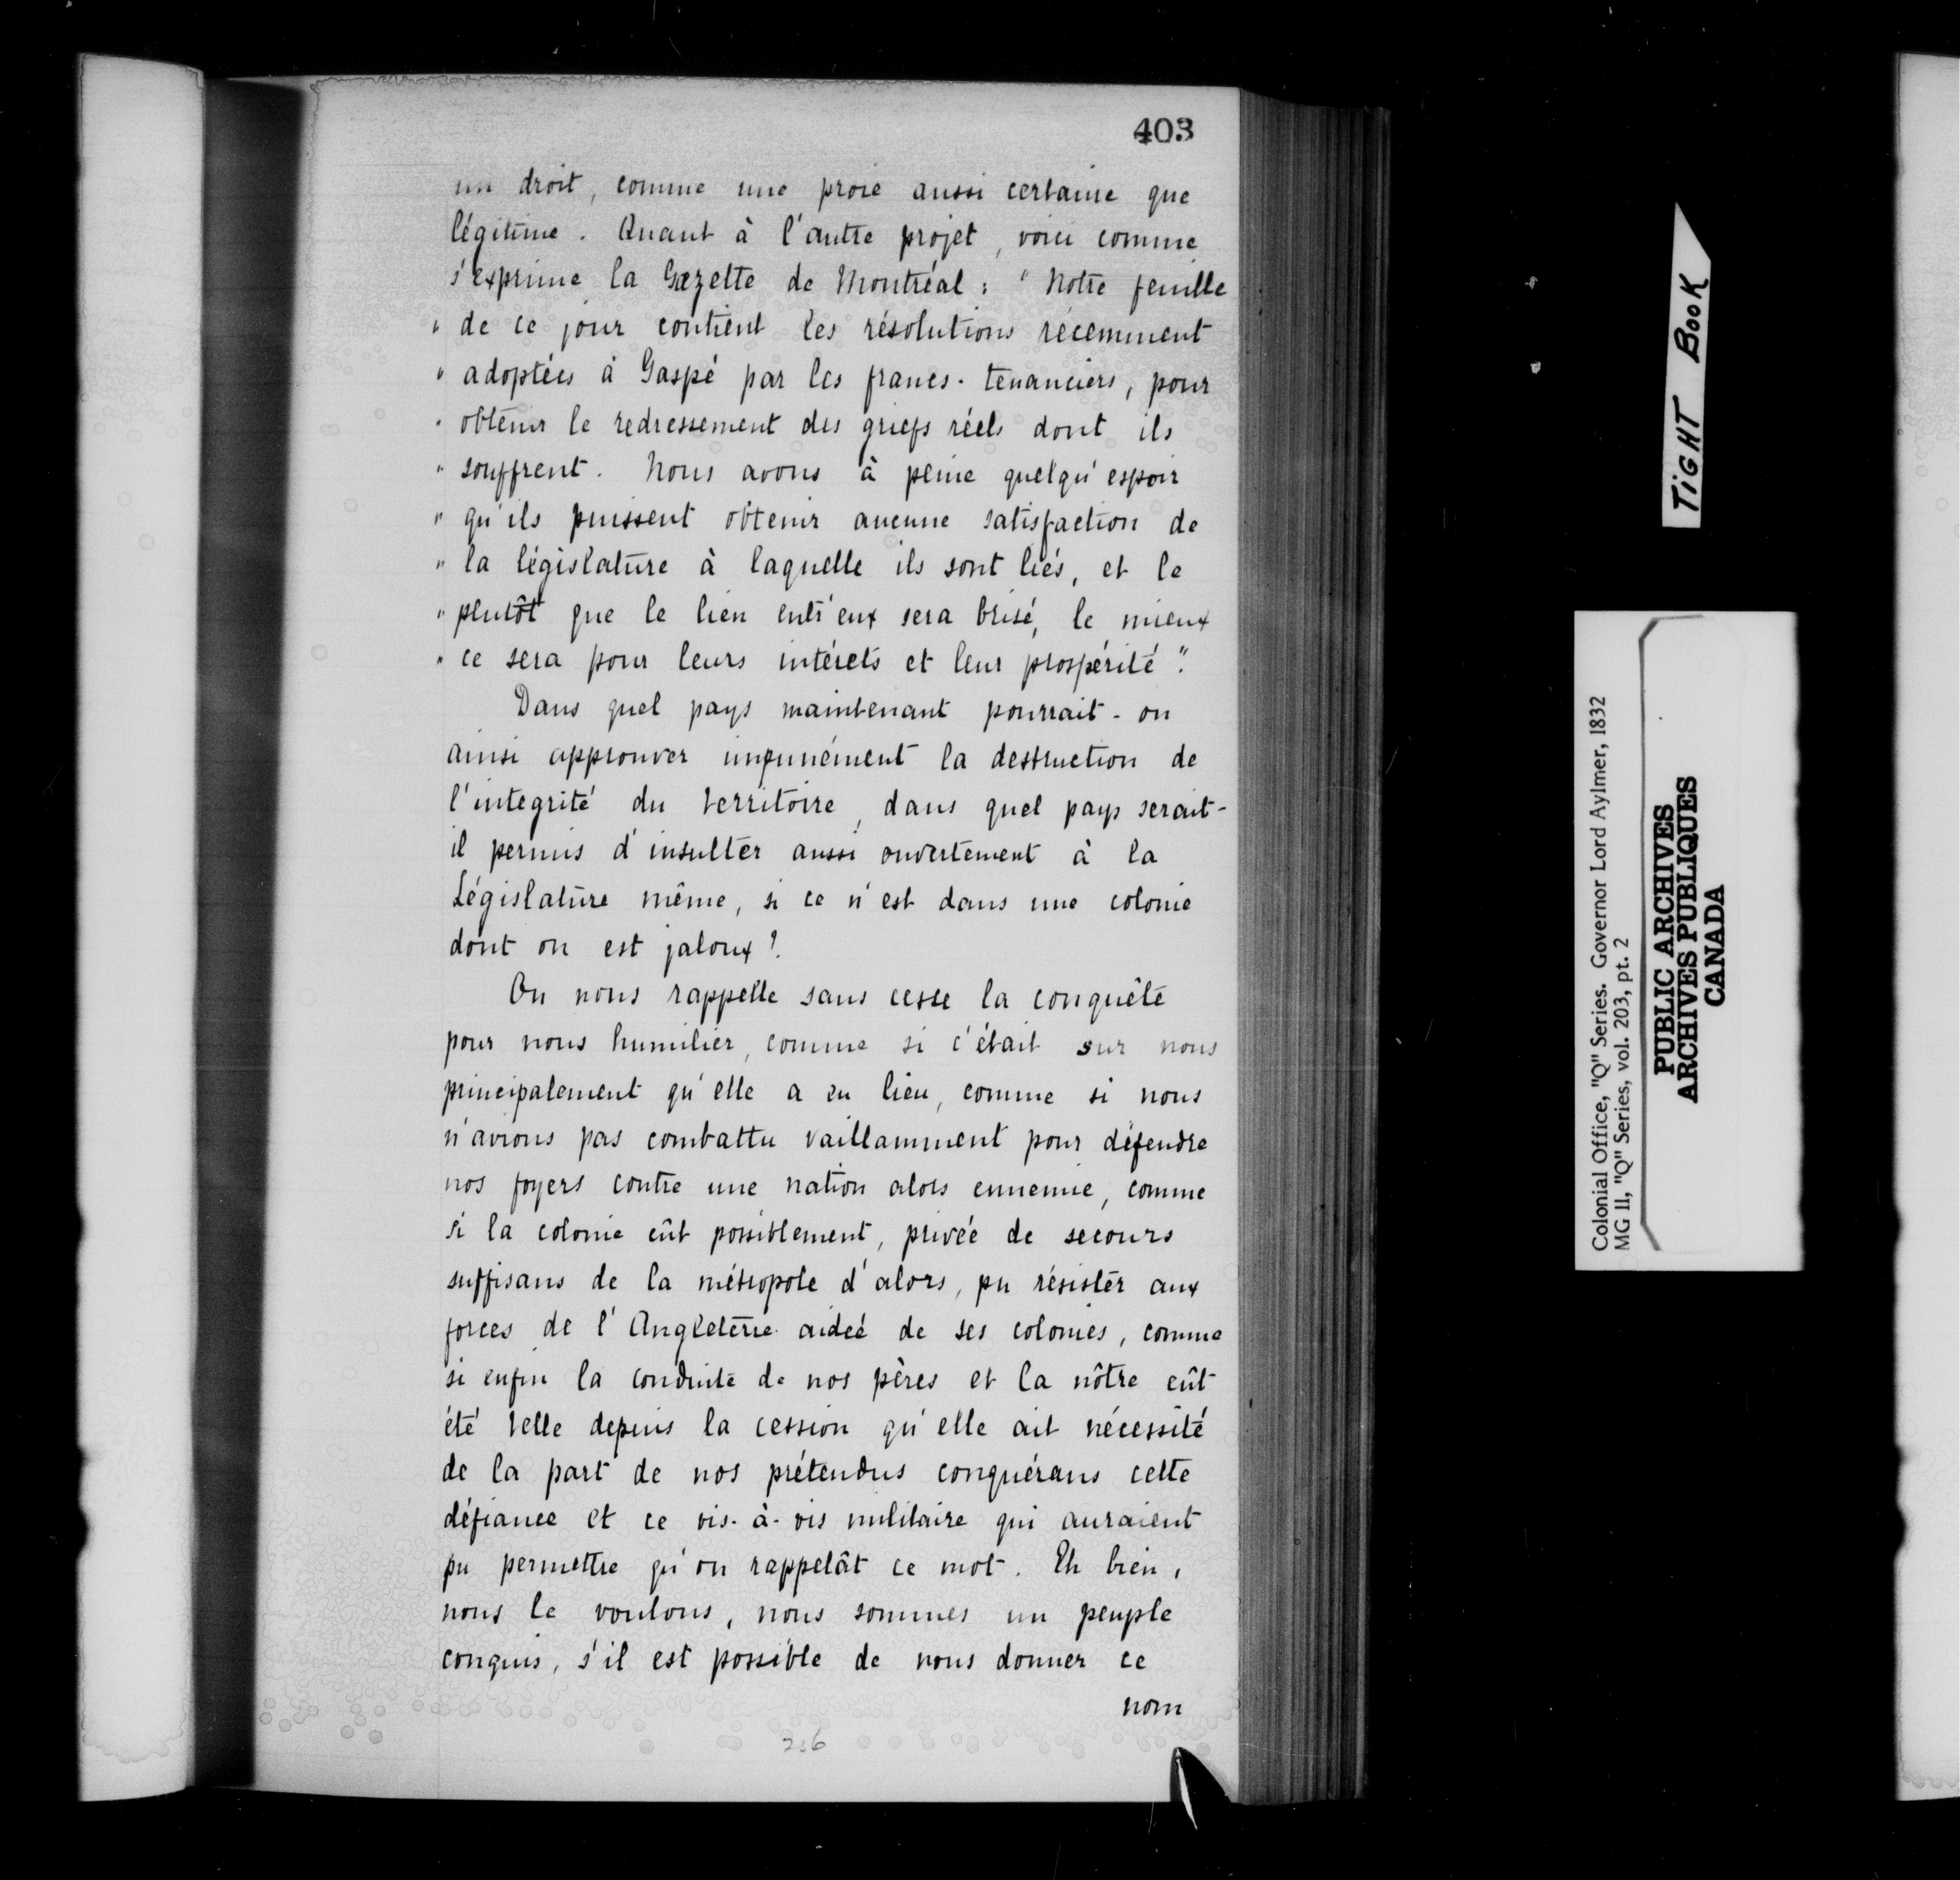 403
un droit, comme une proie aussi certaine que
légitime. Quant à l'autre projet, voici comme
s'exprime la Gazette de Montréal : " Notre feuille
" de ce jour contient les résolutions récemment
" adoptées à Gaspé par les francs-tenanciers, pour
" obtenir le redressement des griefs réels dont ils
" souffrent. Nous avons à peine quelqu'espoir
" qu'ils puissent obtenir aucune satisfaction de
" la législature à laquelle ils sont liés, et le
" plutôt que le lien entr'eux sera brisé, le mieux
" ce sera pour leurs intérets et leur prospérité ".
Dans quel pays maintenant pourrait-on
ainsi approuver impunément la destruction de
l'integrité du territoire, dans quel pays serait-
il permis d'insulter aussi ouvertement à la
Législature même, si ce n'est dans une colonie
dont on est jaloux ?
On nous rappelle sans cesse la conquête
pour nous humilier, comme si c'était sur nous
principalement qu'elle a eu lieu, comme si nous
n'avions pas combattu vaillamment pour défendre
nos foyers contre une nation alors ennemie, comme
si la colonie eût possiblement, privée de secours
suffisans de la métropole d'alors, pu résister aux
forces de l'Angleterre aideé de ses colonies, comme
si enfin la conduite de nos pères et la nôtre eût
été telle depuis la cession qu'elle ait nécessité
de la part de nos prétendus conquérans cette
défiance et ce vis-à-vis militaire qui auraient
pu permettre qu'on rappelât ce mot. Eh bien,
nous le voulons, nous sommes un peuple
conquis, s'il est possible de nous donner ce
nom
TIGHT BOOK
Colonial Office, "Q" Series. Governor Lord Aylmer, 1832
MG 11, "Q" Series, vol. 203, pt. 2
PUBLIC ARCHIVES
ARCHIVES PUBLIQUES
CANADA